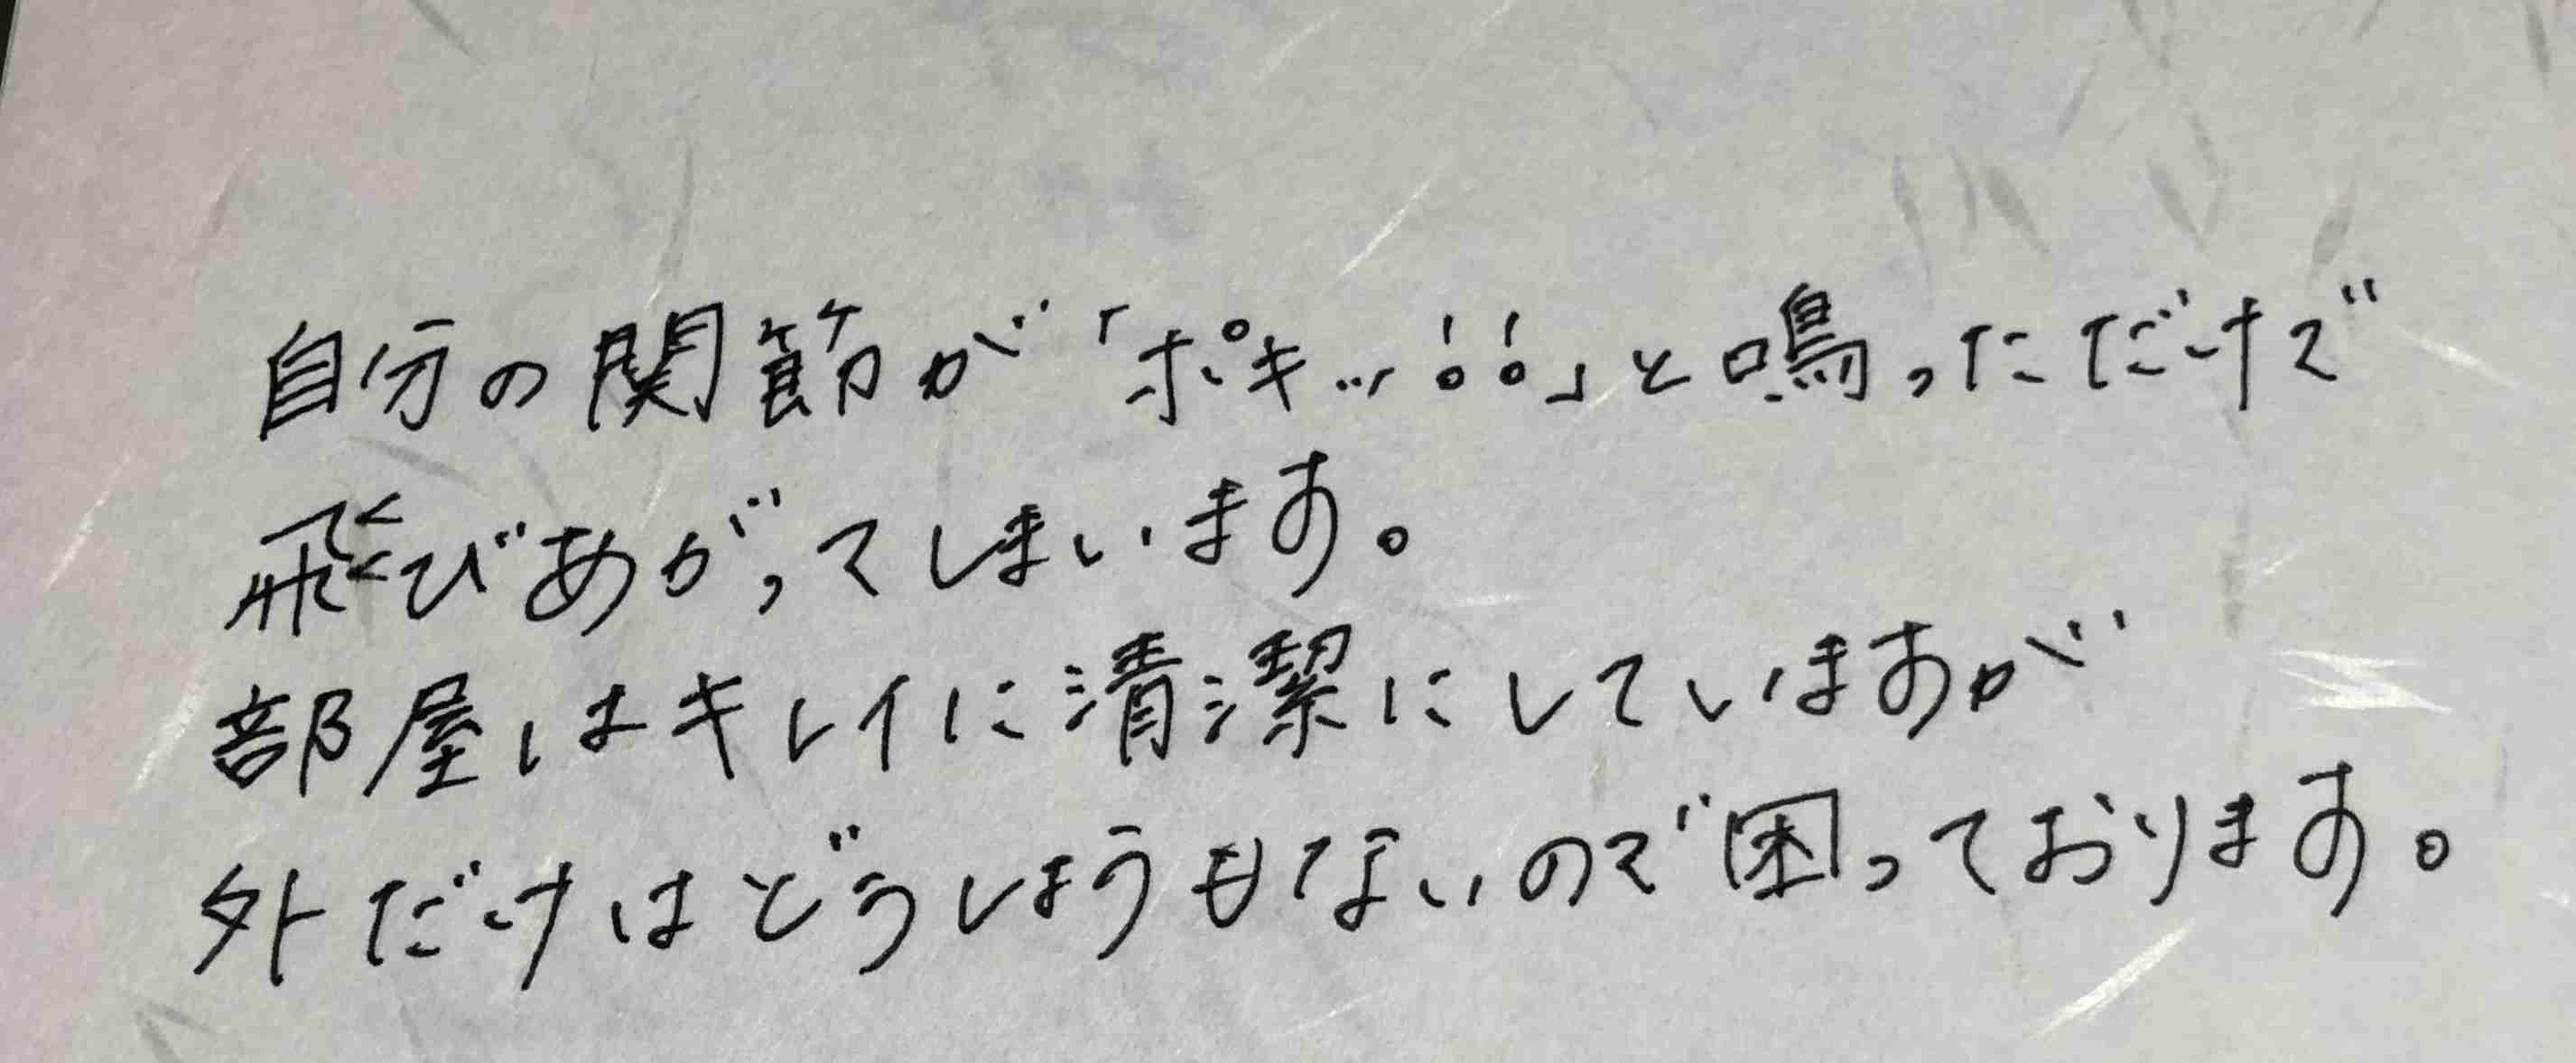 自分の関節が「ポキッ!!」と鳴っただけで
飛びあがってしまいます。
部屋はキレイに清潔にしていますが
外だけはどうしようもないので困っております。